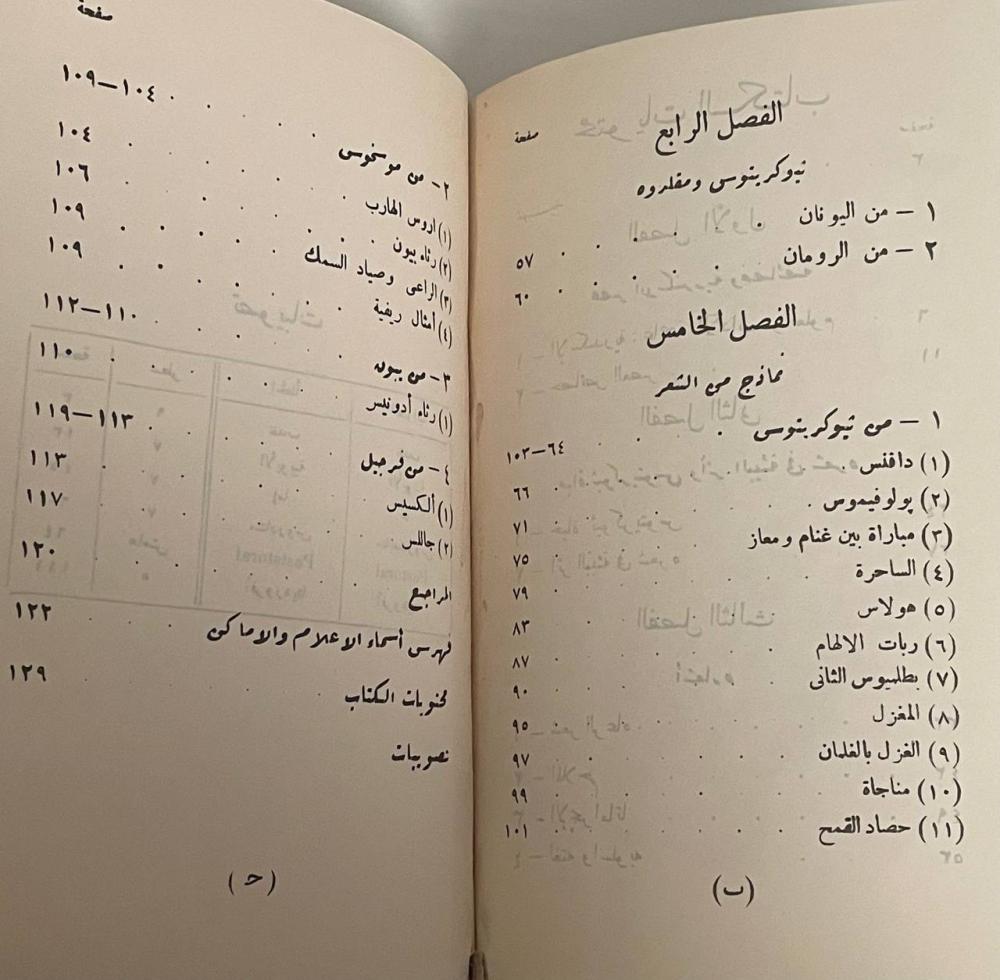 الفصل الرابع
صفحة
ثيوكريتوس ومقلدوه
١ — من اليونان . . . . ٥٧
٢ — من الرومان . . . . ٦٠
الفصل الخامس
نماذج من الشعر
١ — من ثيوكريتوس . . . . ٦٤—١٠٣
(١) دافنس . . . . ٦٦
(٢) پولوفيموس . . . . ٧١
(٣) مباراة بين غنام ومعاز . . . . ٧٥
(٤) الساحرة . . . . ٧٩
(٥) هولاس . . . . ٨٣
(٦) ربات الالهام . . . . ٨٧
(٧) بطلميوس الثانى . . . . ٩٠
(٨) المغزل . . . . ٩٥
(٩) الغزل بالغلمان . . . . ٩٧
(١٠) مناجاة . . . . ٩٩
(١١) حصاد القمح . . . . ١٠١
(ب)
صفحة
٢ — من موسخوس . . . . ١٠٤—١٠٩
(١) اروس الهارب . . . . ١٠٤
(٢) رثاء بيون . . . . ١٠٦
(٣) الراعى وصياد السمك . . . . ١٠٩
(٤) أمثال ريفية . . . . ١٠٩
٣ — من بيون . . . . ١١٠—١١٢
(١) رثاء أدونيس . . . . ١١٠
٤ — من فرجيل . . . . ١١٣—١١٩
(١) ألكسيس . . . . ١١٣
(٢) جاللس . . . . ١١٧
المراجع . . . . ١٢٠
فهرس أسماء الاعلام والاماكن . . . . ١٢٢
محتويات الكتاب . . . . ١٢٩
تصويبات
(ح)